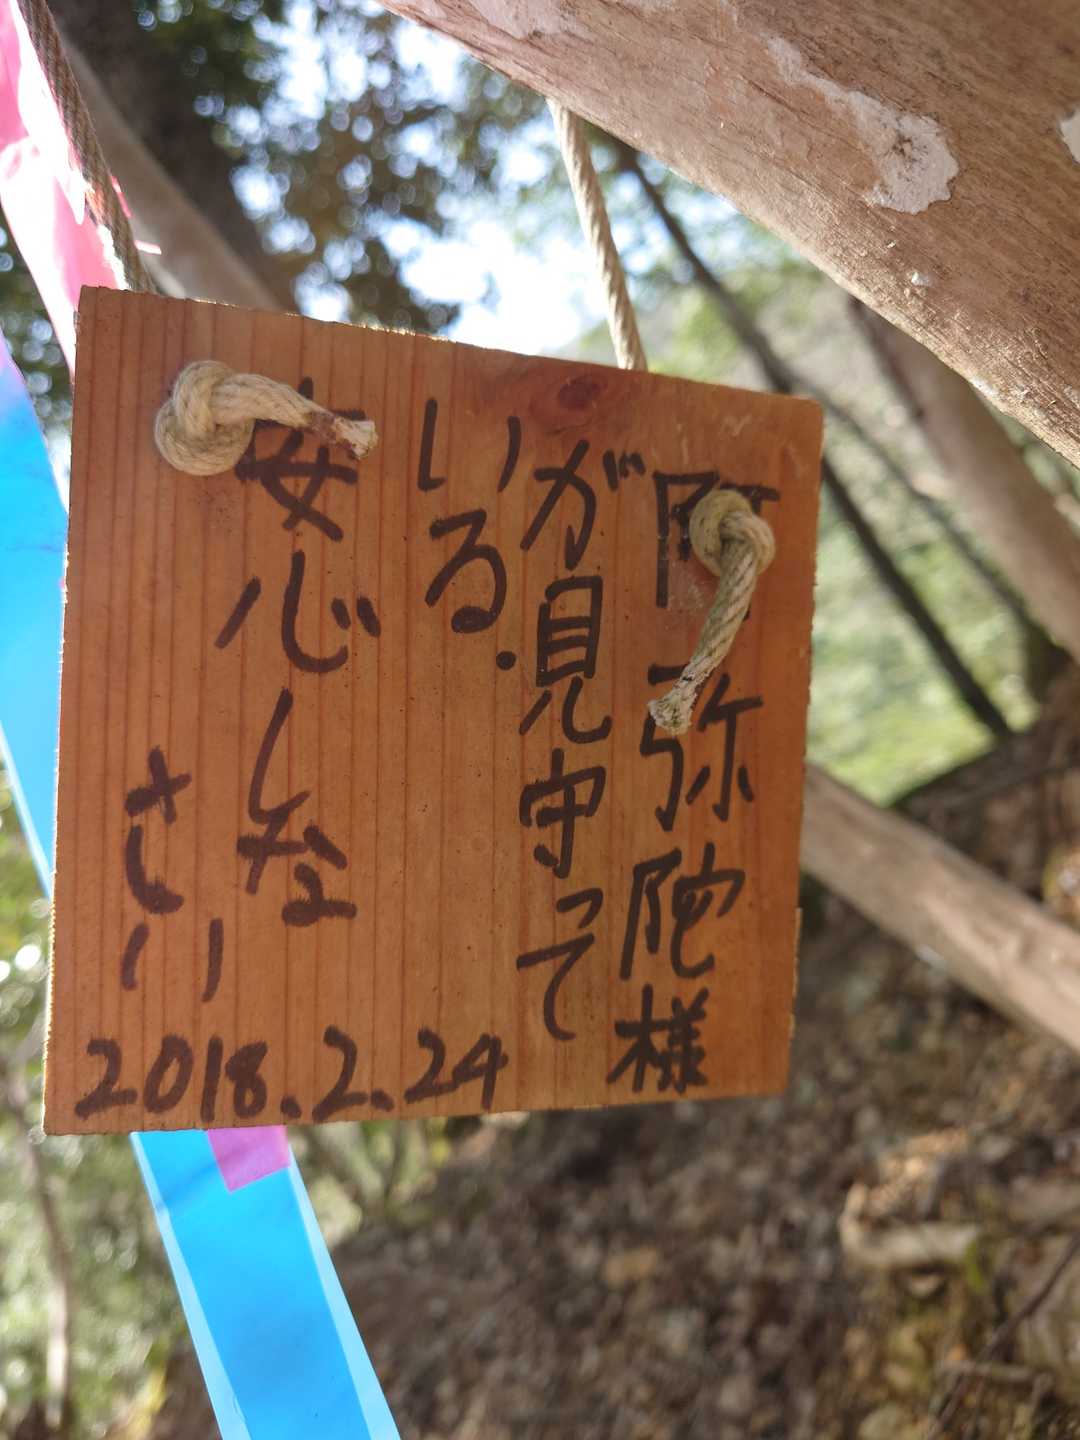 阿弥陀様
が見守って
いる.
安心しな
さい
2018.2.24